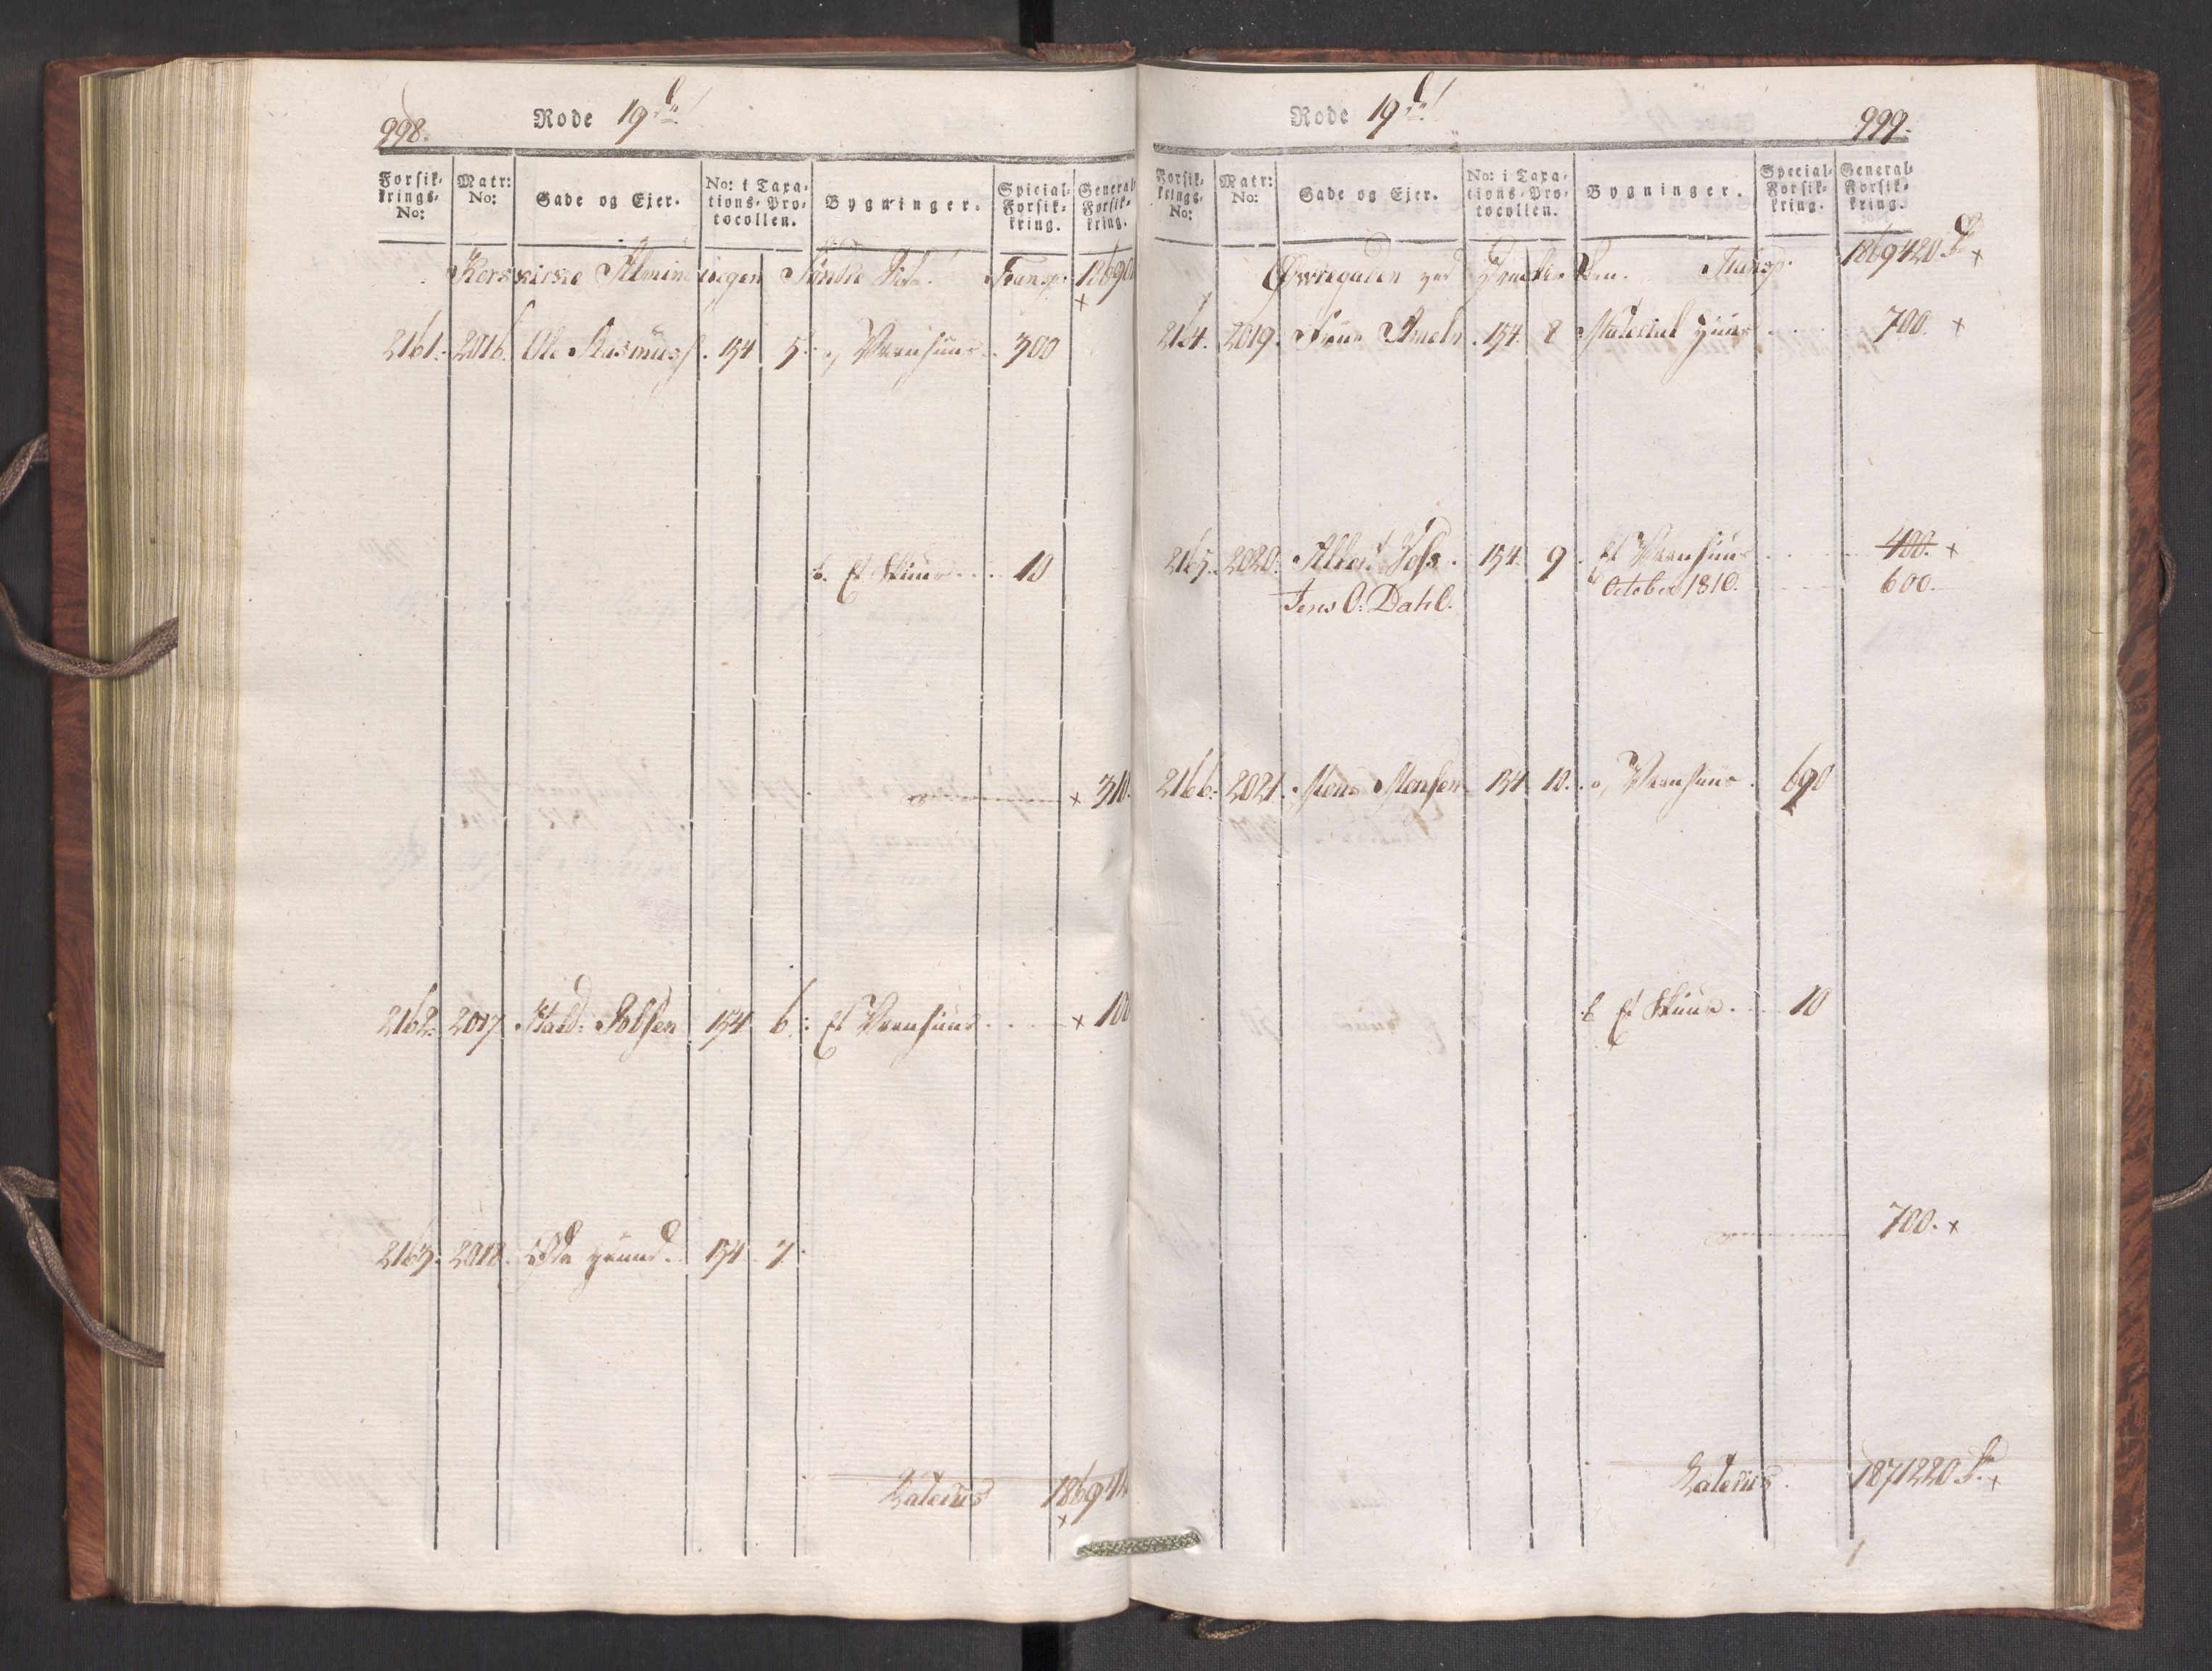 998.
Rode 19de
Forsikkrings- No: Matr: No: Gade og Ejer. No: i Taxations-Protocollen. Bygninger. Special-Forsikkring. General-Forsikkring.
Korskirke Almindingen Søndre Side. Transp: 18690
2161. 2016. Ole Rasmuss. 154 5. a, Vaanhuus 300
b. Et Skuur 10
310.
2162. 2017. 154 6. Et Vaanhuus 100
2163. 2018. Øde Grund. 154 7.
Laterus 18694
Rode 19de
999.
Forsikkrings- No: Matr: No: Gade og Ejer. No: i Taxations-Protocollen. Bygninger. Special-Forsikkring. General-Forsikkring.
Øvregaden ved Transp. 1869420
2164. 2019. 154. 8 Material Huus 700.
2165. 2020. Albert 154. 9. Et Vaanhuus 400.
Jens O. Dahl. October 1810. 600.
2166. 2021. Mons Monsen 154 10. a, Vaanhuus 690
b Et Skuur. 10
700.
Laterus 1871220